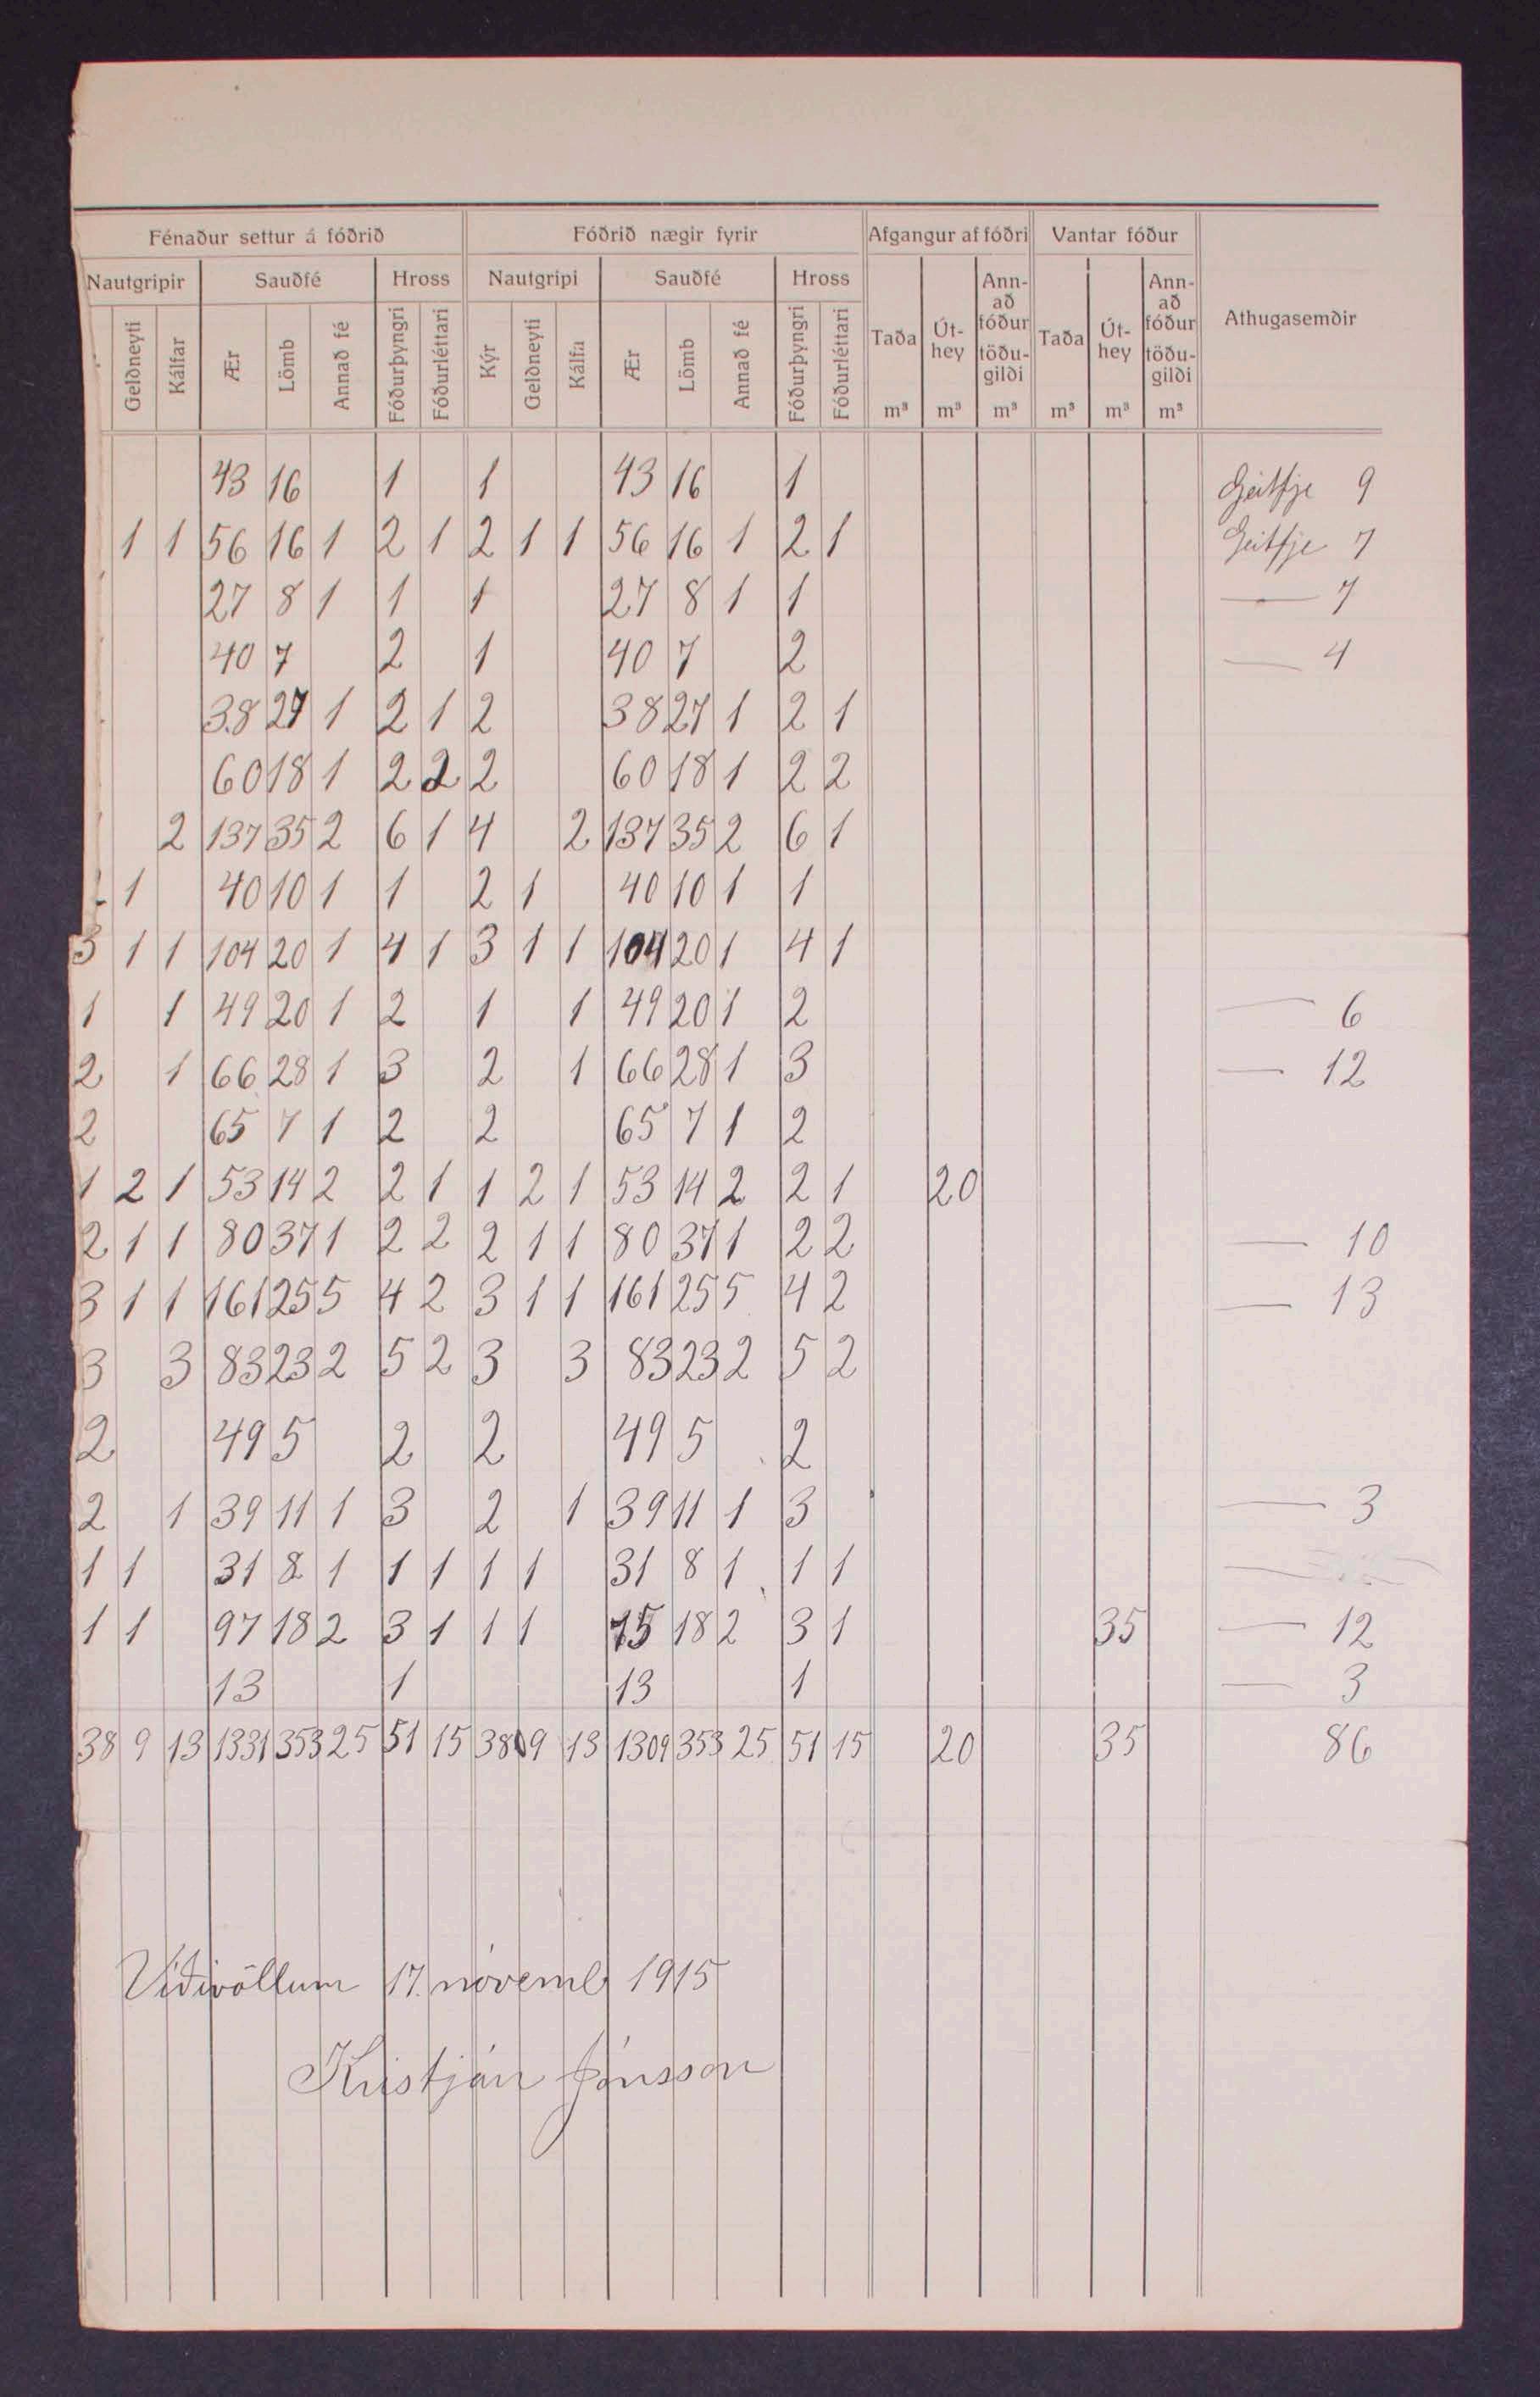 Fénaður settur á fóðrið Fóðrið nægir fyrir Afgangur af fóðri Vantar fóður Athugasemðir
Nautgripir Sauðfé Hross Nautgripi Sauðfé Hross Taða m³ Út-hey m³ Ann-að fóður töðu-gilði m³ Taða m³ Út-hey m³ Ann-að fóður töðu-gilði m³
Gelðneyti Kálfar Ær Lömb Annað fé Fóðurþyngri Fóðurléttari Kýr Gelðneyti Kálfa Ær Lömb Annað fé Fóðurþyngri Fóðurléttari
43 16 1 1 43 16 1 Geitfje 9
1 1 56 16 1 2 1 2 1 1 56 16 1 2 1 Geitfje 7
27 8 1 1 1 27 8 1 1 — 7
40 7 2 1 40 7 2 — 4
38 27 1 2 1 2 38 27 1 2 1
60 18 1 2 2 2 60 18 1 2 2
2 137 35 2 6 1 4 2 137 35 2 6 1
1 40 10 1 1 2 1 40 10 1 1
3 1 1 104 20 1 4 1 3 1 1 104 20 1 4 1
1 1 49 20 1 2 1 1 49 20 1 2 — 6
2 1 66 28 1 3 2 1 66 28 1 3 — 12
2 65 7 1 2 2 65 7 1 2
1 2 1 53 14 2 2 1 1 2 1 53 14 2 2 1 20
2 1 1 80 37 1 2 2 2 1 1 80 37 1 2 2 — 10
3 1 1 161 25 5 4 2 3 1 1 161 25 5 4 2 — 13
3 3 83 23 2 5 2 3 3 83 23 2 5 2
2 49 5 2 2 49 5 2
2 1 39 11 1 3 2 1 39 11 1 3 — 3
1 1 31 8 1 1 1 1 1 31 8 1 1 1
1 1 97 18 2 3 1 1 1 75 18 2 3 1 35 — 12
13 1 13 1 — 3
38 9 13 1331 353 25 51 15 38 9 13 1309 353 25 51 15 20 35 86
Víðivöllum 17. nóvemb 1915
Kristján Jónsson